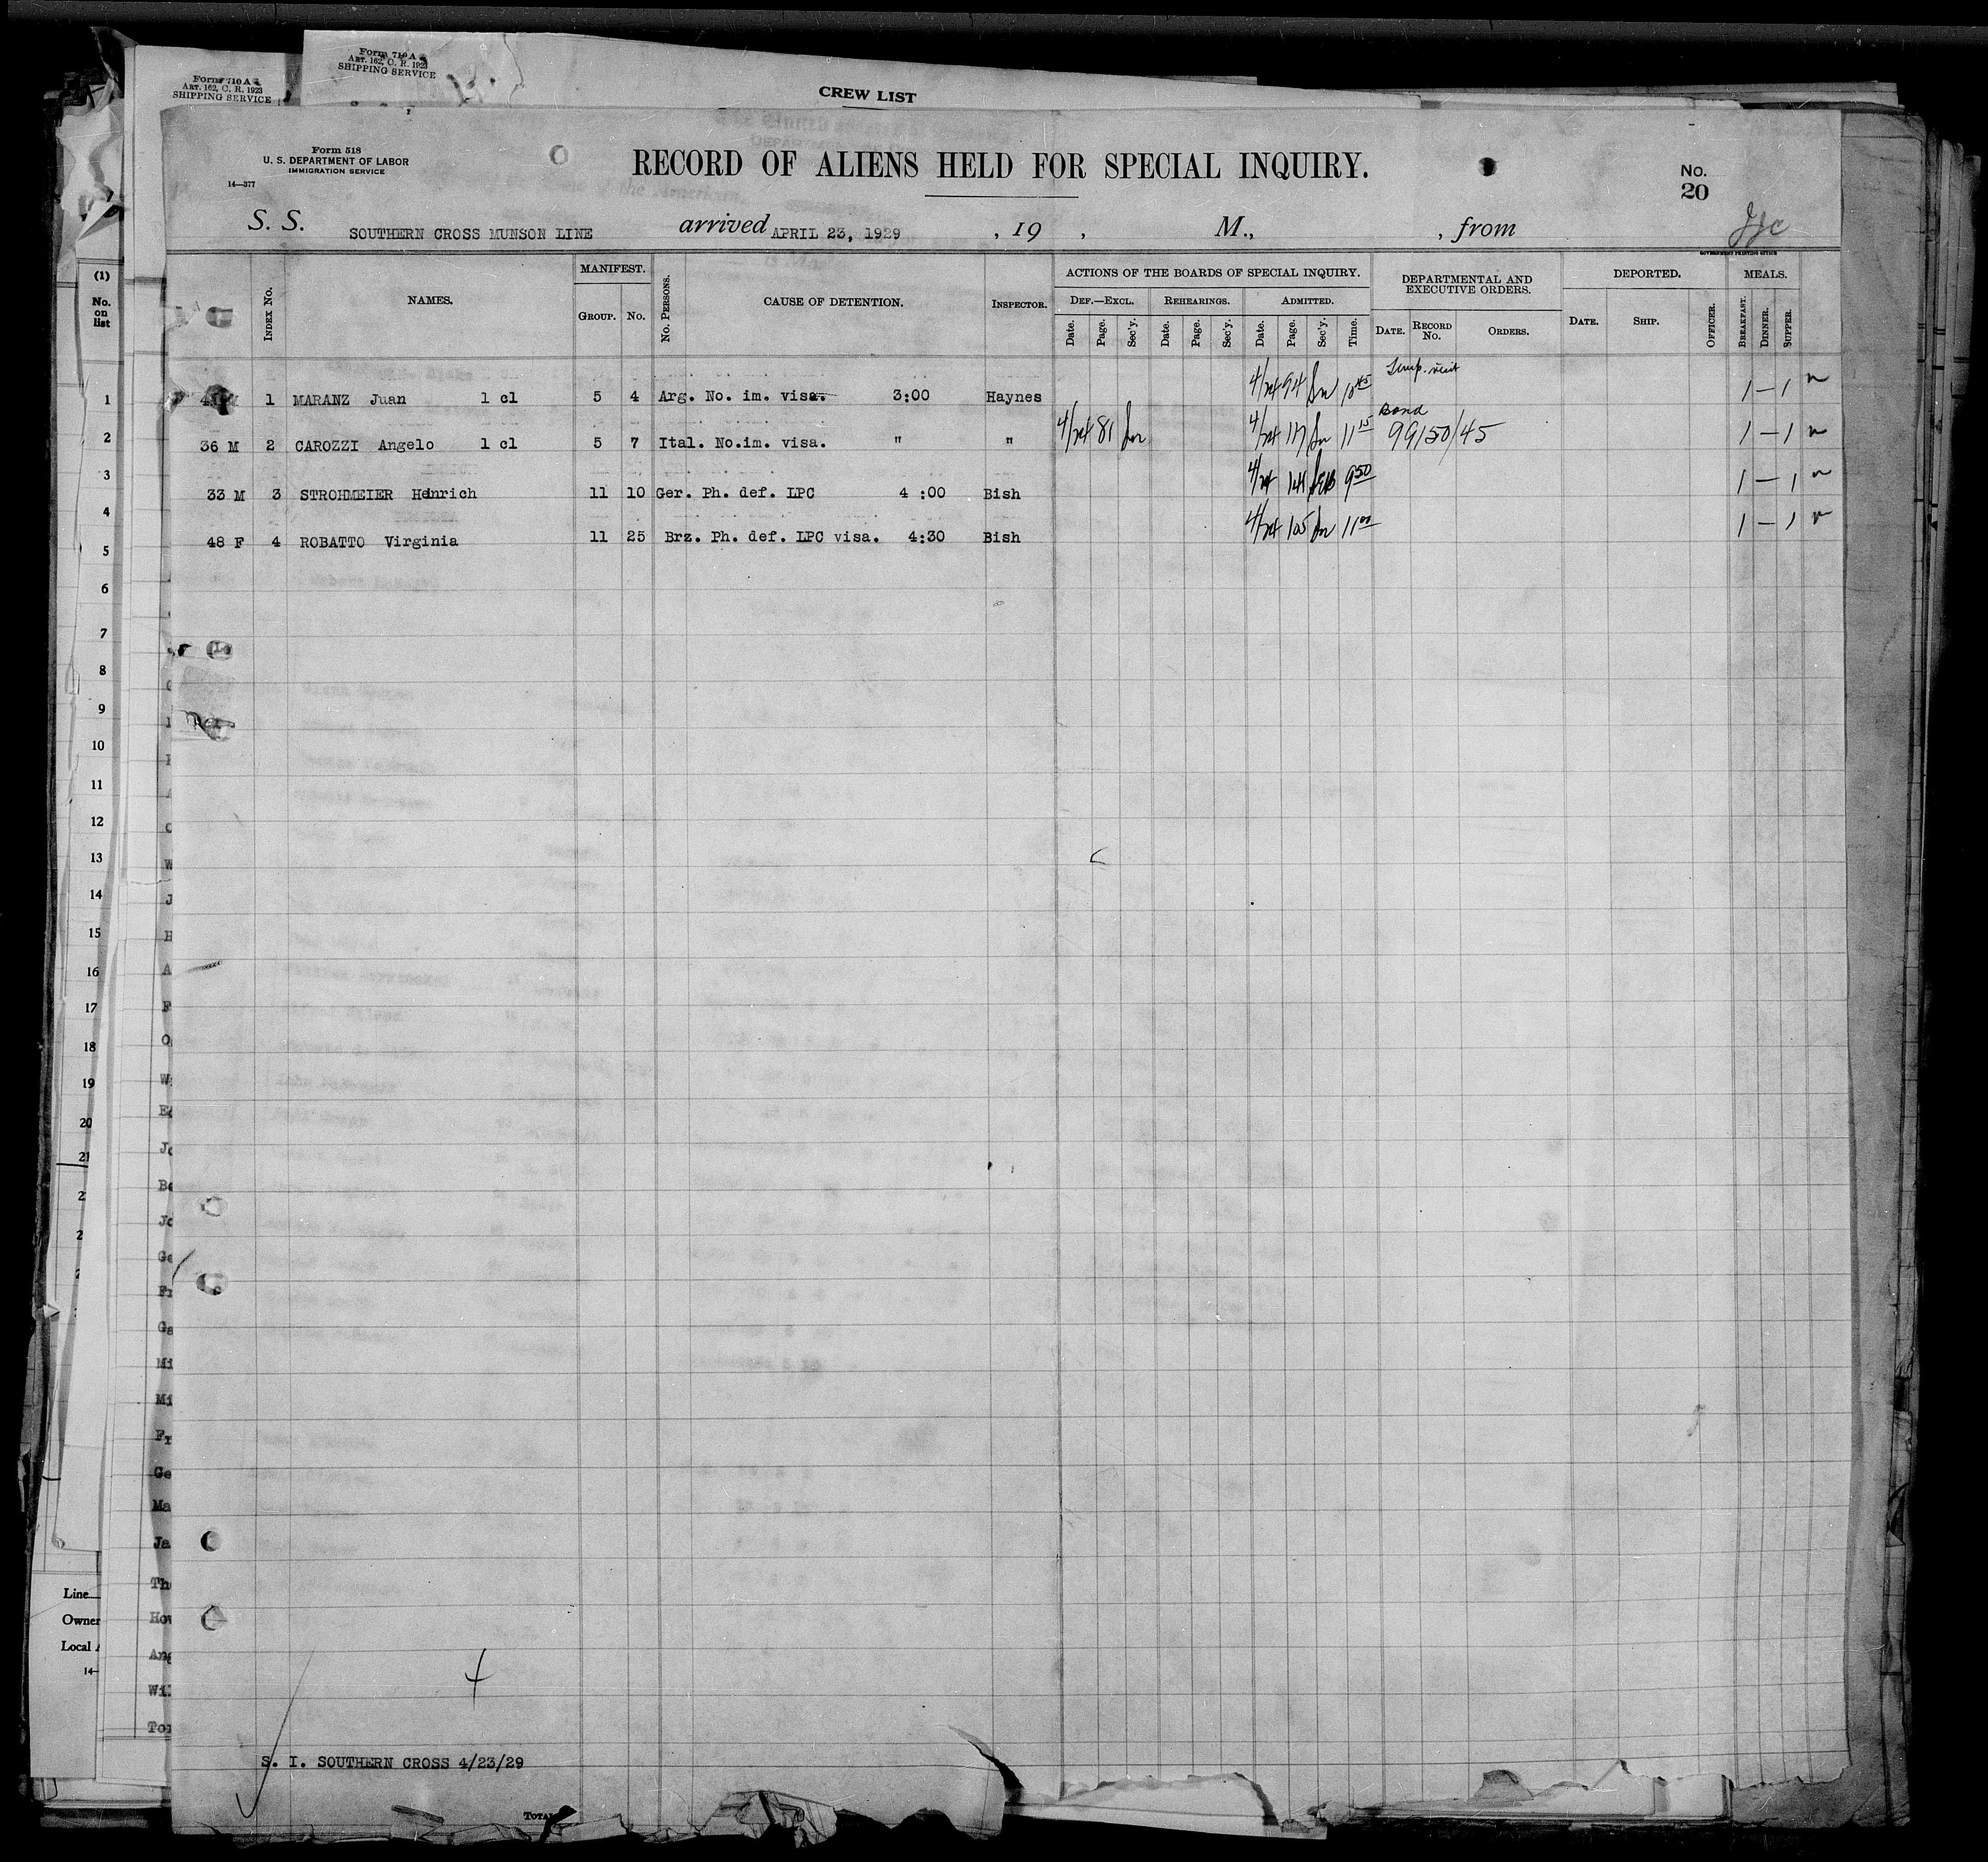 Form 710 A
ART. 162, C. R. 1923
SHIPPING SERVICE
Form 710 A
ART. 162, C. R. 1923
SHIPPING SERVICE
CREW LIST
Form 518
U. S. DEPARTMENT OF LABOR
IMMIGRATION SERVICE
14—377
RECORD OF ALIENS HELD FOR SPECIAL INQUIRY.
No.
20
S. S. SOUTHERN CROSS MUNSON LINE arrived APRIL 23, 1929 , 19 , M., , from
GOVERNMENT PRINTING OFFICE
(1)
No.
on
list
INDEX No. NAMES. MANIFEST. GROUP. No. No. PERSONS. CAUSE OF DETENTION. INSPECTOR.
ACTIONS OF THE BOARDS OF SPECIAL INQUIRY. DEF.—EXCL. REHEARINGS. ADMITTED.
Date. Page. Sec'y. Date. Page. Sec'y. Date. Page. Sec'y. Time.
DEPARTMENTAL AND EXECUTIVE ORDERS. DATE. RECORD No. ORDERS.
DEPORTED. DATE. SHIP. OFFICER.
MEALS. BREAKFAST. DINNER. SUPPER.
Temp. visit
M 1 MARANZ Juan 1 cl 5 4 Arg. No. im. visa. 3:00 Haynes 4/24 94 10 45 1 — 1
Bond
36 M 2 CAROZZI Angelo 1 cl 5 7 Ital. No.im. visa. " " 4/24 81 4/24 11 15 99150/45 1 — 1
33 M 3 STROHMEIER Heinrich 11 10 Ger. Ph. def. LPC 4 :00 Bish 4/24 9 50 1 — 1
48 F 4 ROBATTO Virginia 11 25 Brz. Ph. def. LPC visa. 4:30 Bish 4/24 105 11 00 1 — 1
1
2
3
4
5
6
7
8
9
10
11
12
13
14
15
16
17
18
19
20
21
Line
Owner
Local
14—
4
S. I. SOUTHERN CROSS 4/23/29
TOTAL